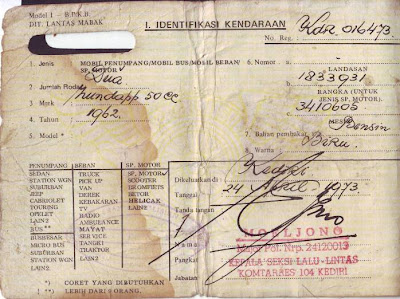 Model I - B.P.K.B.
DIT. LANTAS MABAK
I. IDENTIFIKASI KENDARAAN
No. Reg. : Kdr 016473.
1. Jenis : MOBIL PENUMPANG/MOBIL BUS/MOBIL BEBAN/
SP. MOTOR
2. Jumlah Roda : Dua
3. Mark : Zundapp 50 CC
4. Tahun : 1962.
5. Model *)
6. a. LANDASAN
1833931
b. RANGKA (UNTUK
JENIS SP. MOTOR)
3410605
MESIN
7. Bahan pembakar : Bensin
8. Warna : Biru
PENUMPANG BEBAN SP. MOTOR
SEDAN TRUCK SP. MOTOR
STATION WGN PICK UP SCOOTER
SUBURBAN VAN SKOMFIETS
JEEP DEREK BEMOTOR
CABRIOLET KEBAKARAN HELICAK
TOURING TV LAIN2
OPELET RADIO
LAIN2 AMBULANCE
BUS** MAYAT
BUSBESAR SERVICE
MICRO BUS TANGKI
SUBURBAN TRAKTOR
STATION WGN LAIN2
LAIN2
*) CORET YANG DIBUTUHKAN
**) LEBIH DARI 8 ORANG.
Dikeluarkan di : Kediri
Tanggal : 24 April 1973.
Tanda tangan
Nama
Pangkat
Jabatan
MOELJONO
Nrp. 24120013
KEPALA SEKSI LALU-LINTAS
KOMTARRES 104 KEDIRI